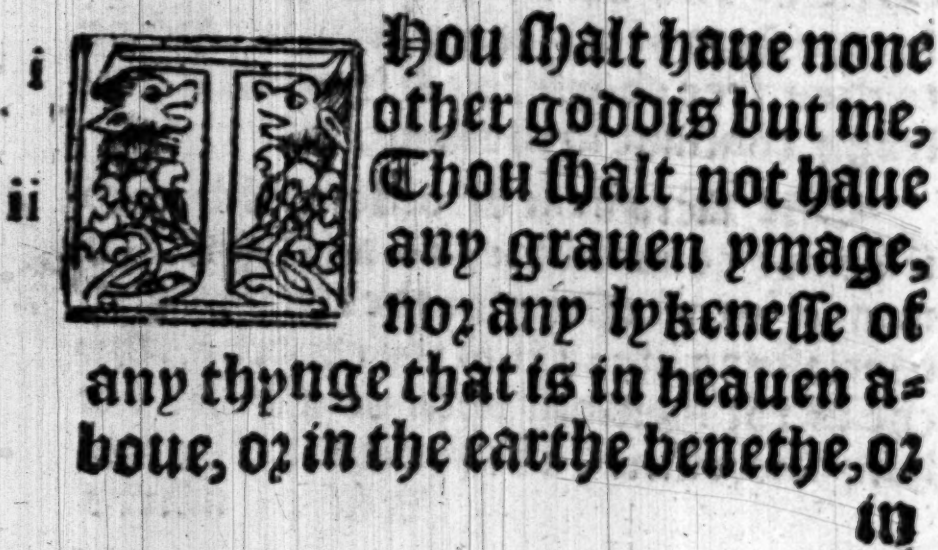 i THou shalt haue none
other goddis but me,
ii Thou shalt not haue
any grauen ymage,
nor any lykenesse of
any thynge that is in heauen a=
boue, or in the earthe benethe, or
in